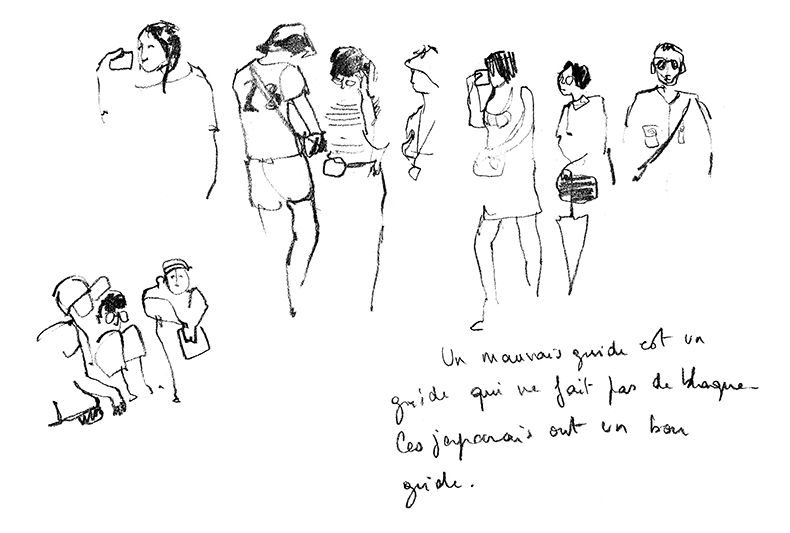 Un mauvais guide est un
guide qui ne fait pas de blague_
Ces japonais ont un bon
guide.